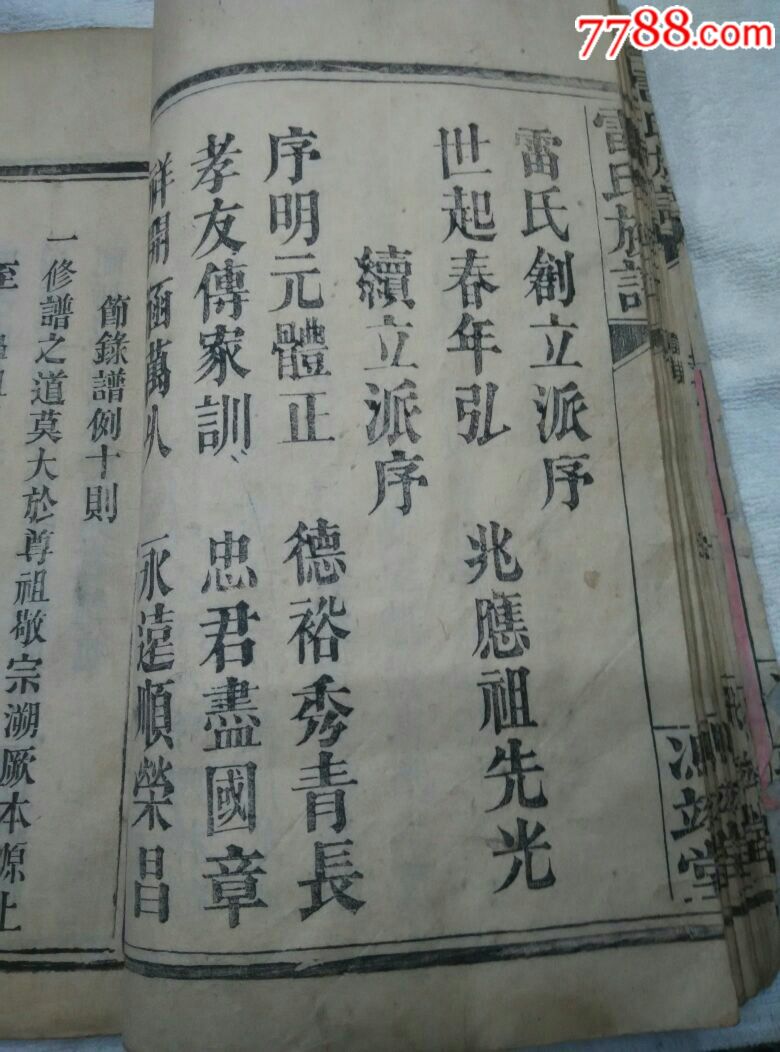 7788.com
雷氏族譜
雷氏創立派序
世起春年弘　兆應祖先光
續立派序
序明元體正　德裕秀青長
孝友傳家訓　忠君盡國章
祥開 萬　永遠順榮昌
節錄譜例十則
一修譜之道莫大於尊祖敬宗溯厥本源上
至